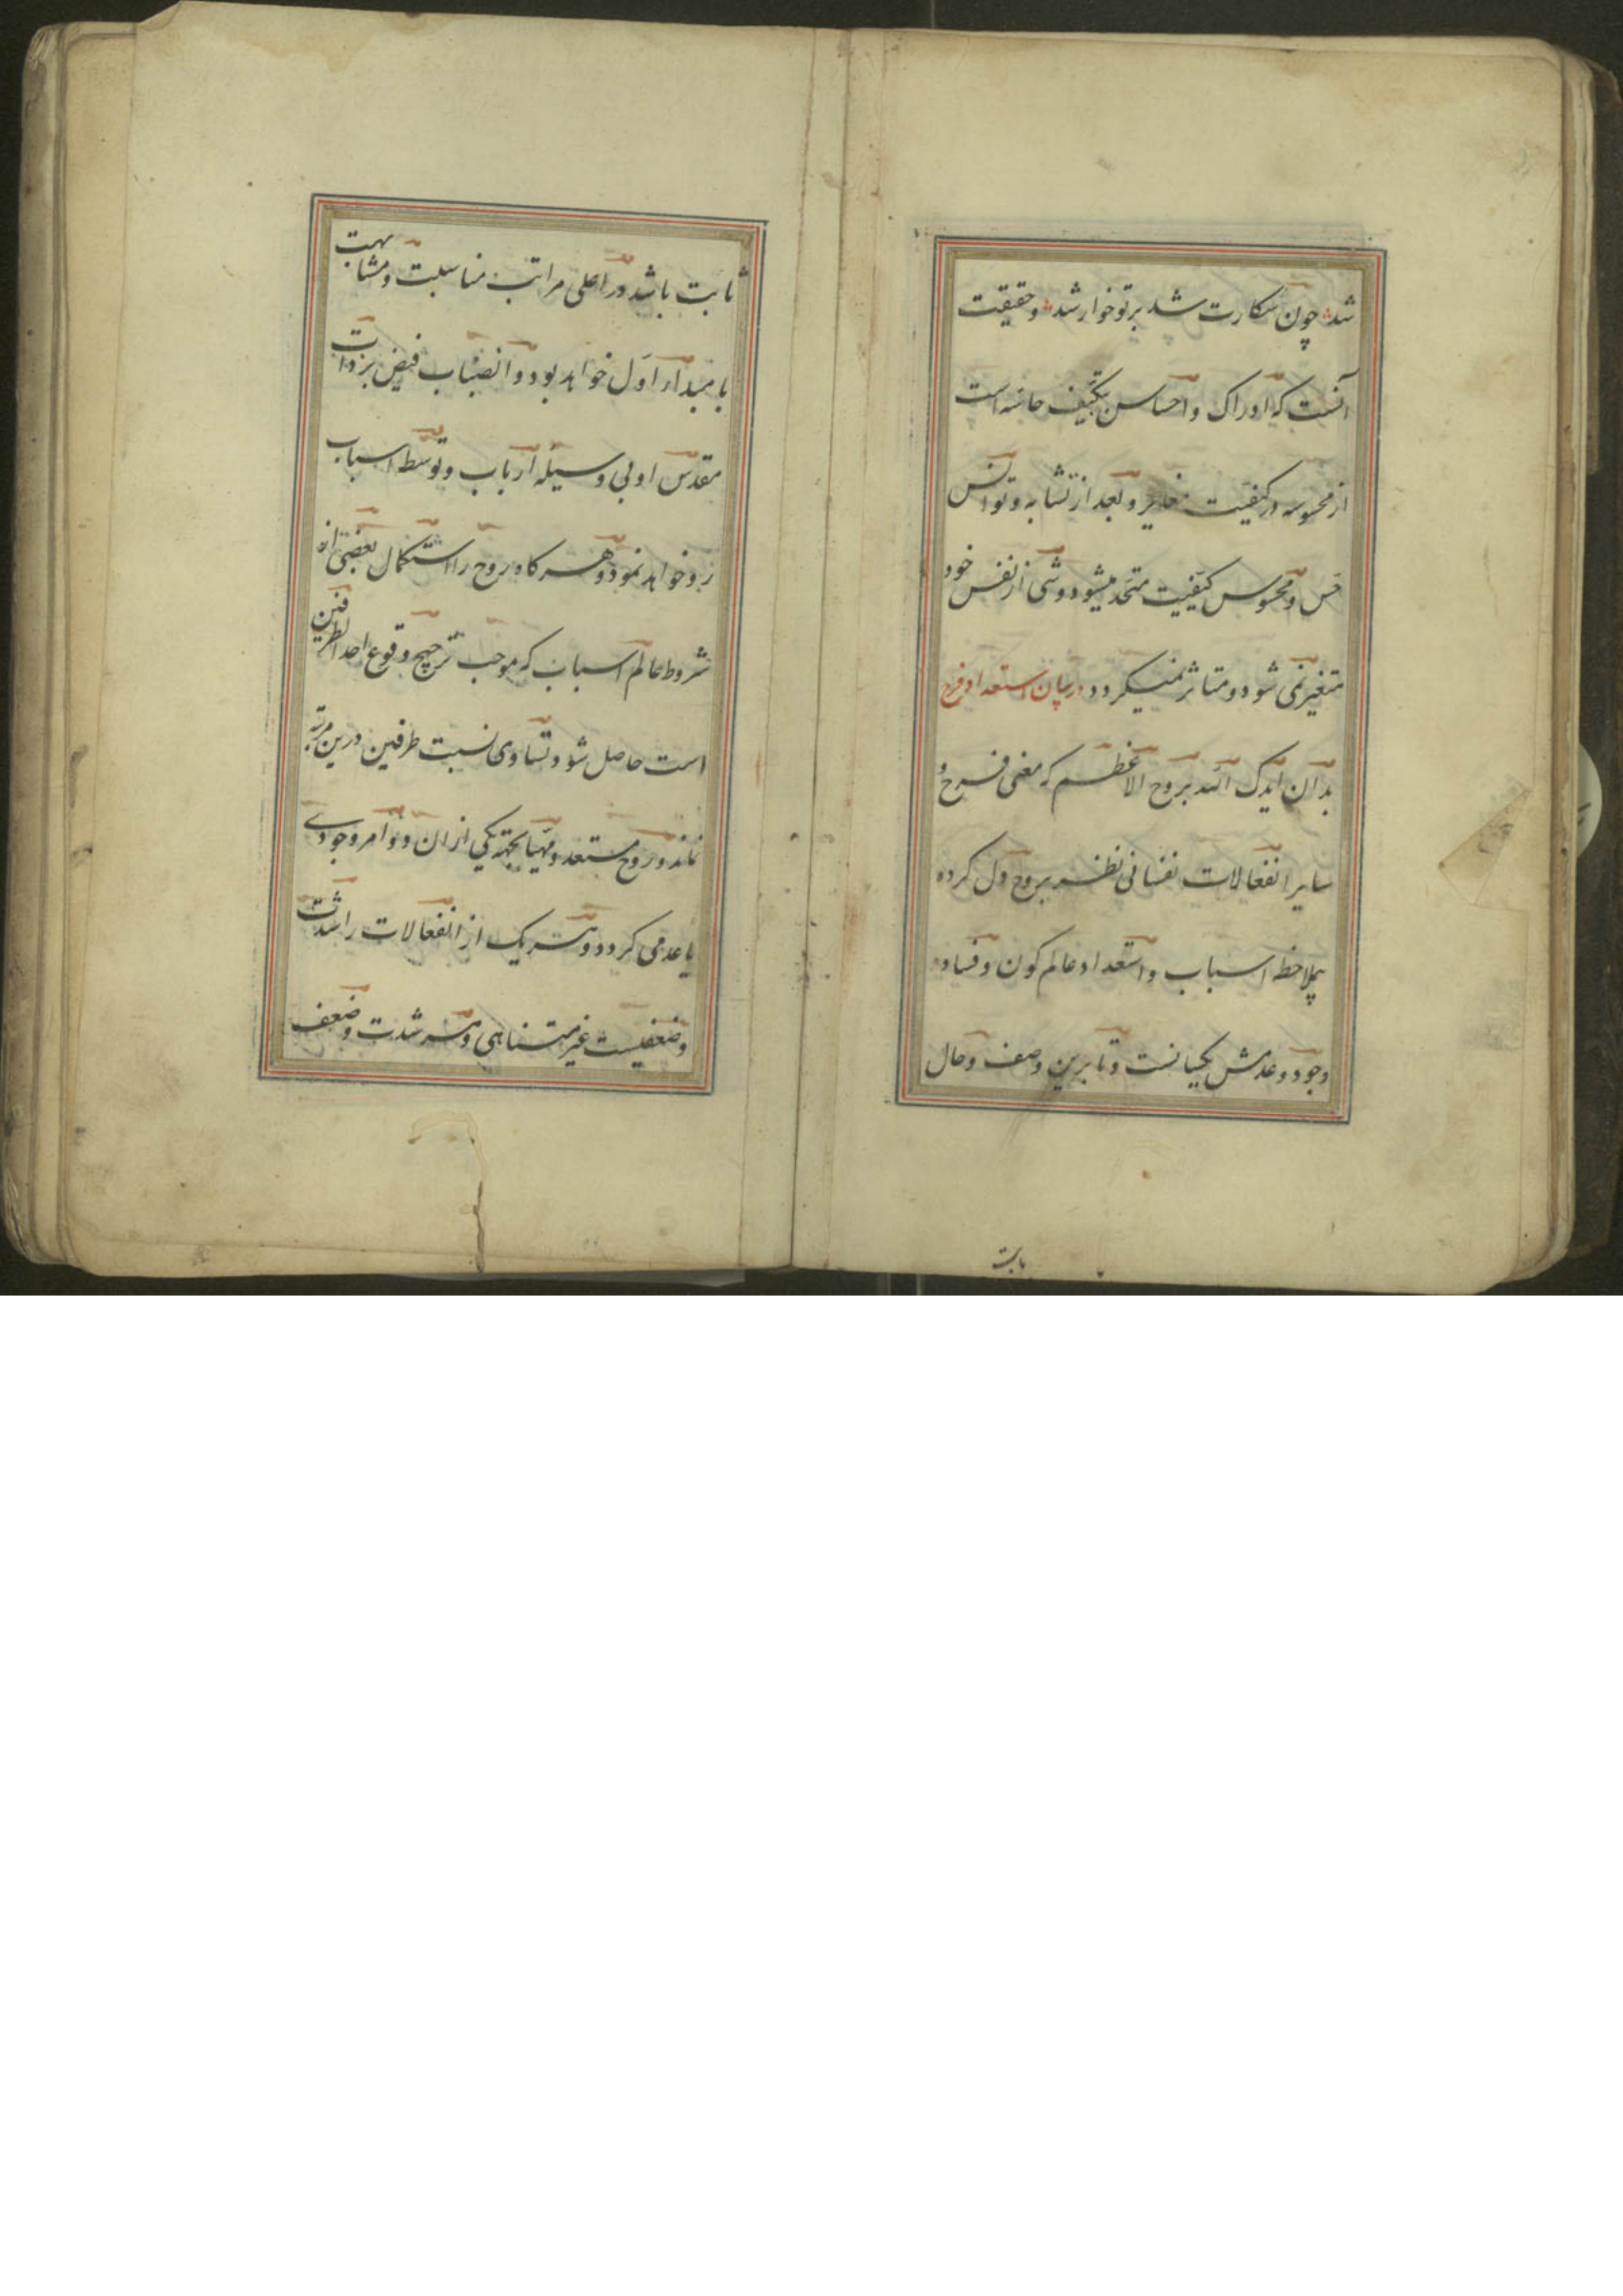 شد چون شکارت شد بر تو خوار شد و حقیقت
آنست که ادراک و احساس تکیف حاسه است
از محسوسه در کیفیت مغایر و بعد از تشابه و توانس
حس و محسوس کیفیت متحد میشود و شی از نفس خود
متغیر نمی شود و متاثر نمیکردد در بیان استعداد فرح
بدان ایدک الله بروح الاعظم که معنی فرح و
سایر انفعالات نفسانی نظر بروح دل کرده
بملاحظه اسباب و استعداد عالم کون و فساد
وجود و عدمش یکسانست و تا برین وصف و حال
ثابت باشد در اعلی مراتب مناسبت و مشابهت
با مبداء اول خواهد بود و انصباب فیض بر ذات
مقدس او بی وسیله ارباب و توسط اسباب
رو خواهد نمود و هر کاه روح را استکمال بعضی از
شروط عالم اسباب که موجب ترجیح وقوع احد الطرفین
است حاصل شود تساوی نسبت طرفین درین مرتبه
نماند و روح مستعد و مهیا بجهة یکی از ان دو امر وجودی
یا عدمی کردد و هر یک از انفعالات را شدت
و ضعفیست غیر متناهی و هر شدت و ضعف